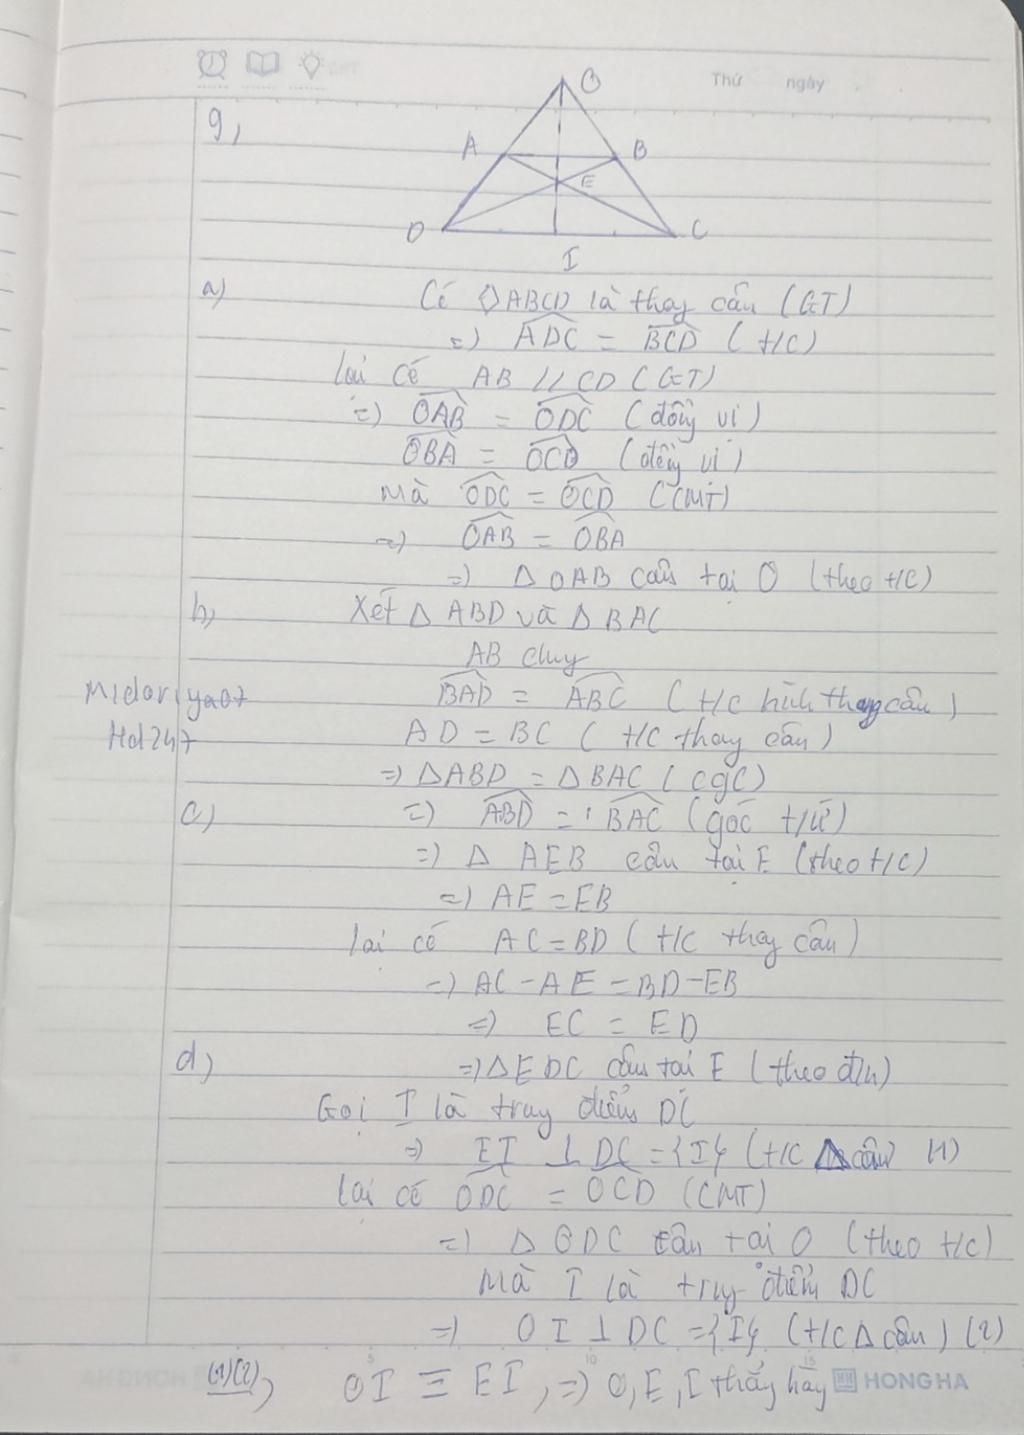 Thứ ngày
9,
O
A B
E
D C
I
a) Có ◊ABCD là thang cân (GT)
=) ADC = BCD (t/c)
lại có AB // CD (GT)
=) OAB = ODC (đồng vị)
OBA = OCD (đồng vị)
mà ODC = OCD (CMT)
=) OAB = OBA
=) Δ OAB cân tại O (theo t/c)
b) Xét Δ ABD và Δ BAC
AB chung
Midoriya07 BAD = ABC (t/c hình thang cân)
Hd247 AD = BC (t/c thang cân)
=) ΔABD = ΔBAC (cgc)
c) =) ABD = BAC (góc t/ứ)
=) Δ AEB cân tại E (theo t/c)
=) AE = EB
lại có AC = BD (t/c thang cân)
=) AC - AE = BD - EB
=) EC = ED
d) =) Δ EDC cân tại E (theo đ/n)
Gọi I là trung điểm DC
=) EI ⊥ DC = {I} (t/c Δ cân) (1)
lại có ODC = OCD (CMT)
=) Δ ODC cân tại O (theo t/c)
Mà I là trung điểm DC
=) OI ⊥ DC = {I} (t/c Δ cân) (2)
(1)(2) OI ≡ EI, =) O, E, I thẳng hàng HONG HA